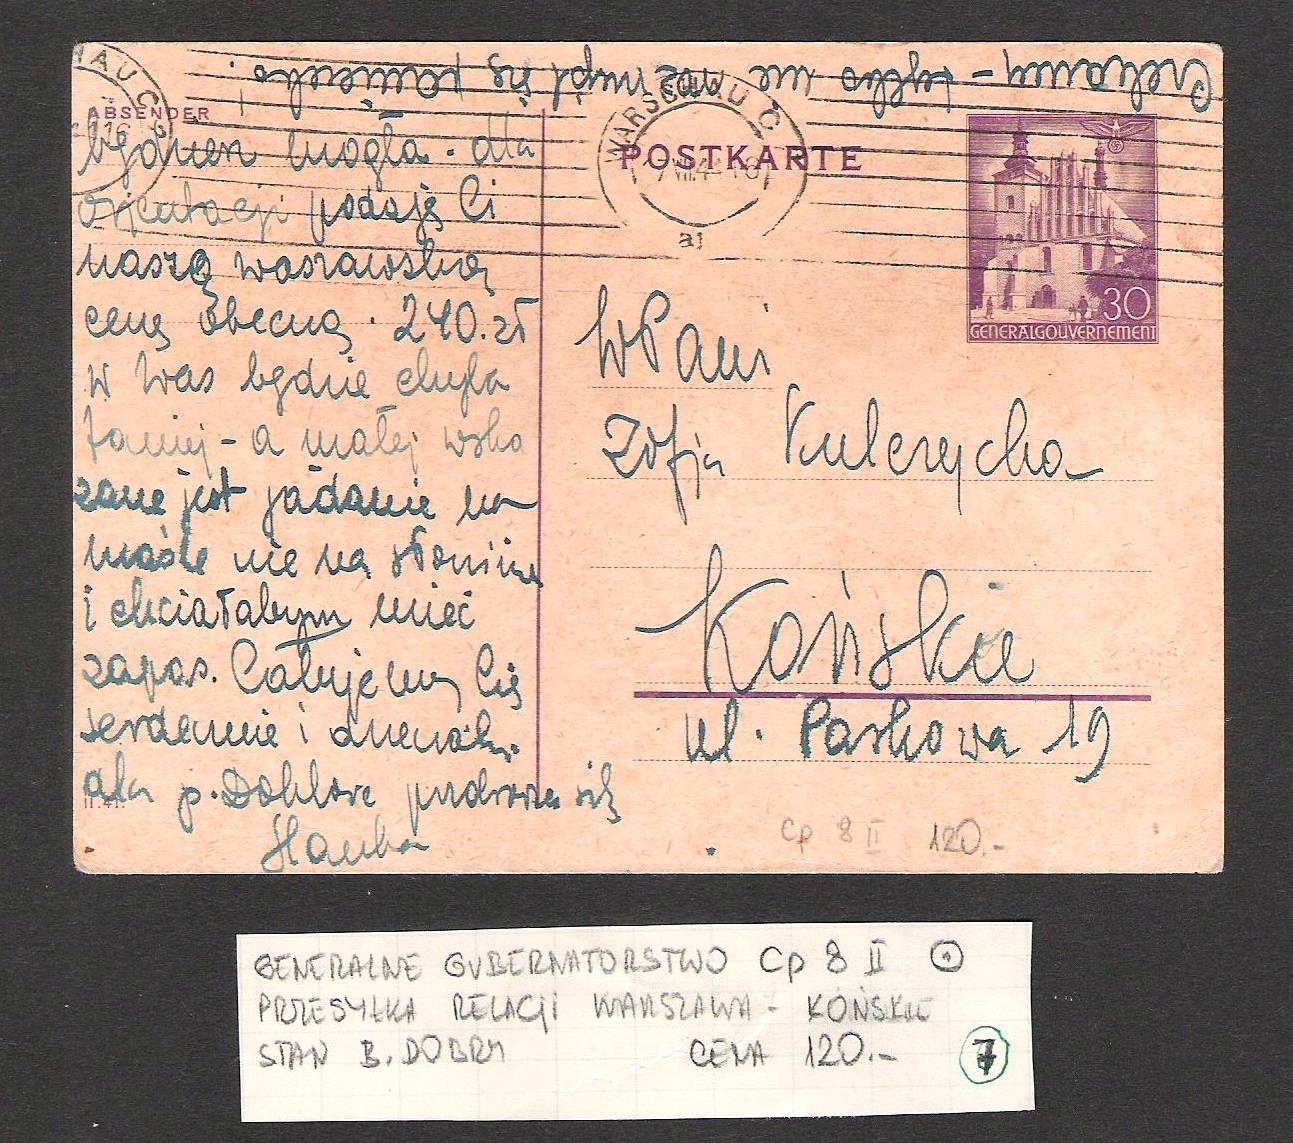 ABSENDER
będziesz mogła. dla
orjentacji podaję Ci
naszą warszawską
cenę obecną. 240. zł
w Was będzie chyba
taniej - a małej wska
zane jest jadanie na
maśle nie na słoninie
i chciałabym mieć
zapas. Całujemy Cię
serdecznie i
dla p. Doktora
Hanka
II. 41.
WARSCHAU C
a1
POSTKARTE
30
GENERALGOUVERNEMENT
WPani
Zofja
Końskie
ul. Parkowa 19
Cp 8 II 120.-
GENERALNE GUBERNATORSTWO Cp 8 II
PRZESYŁKA RELACJI WARSZAWA - KOŃSKIE
STAN B. DOBRY CENA 120.- 7